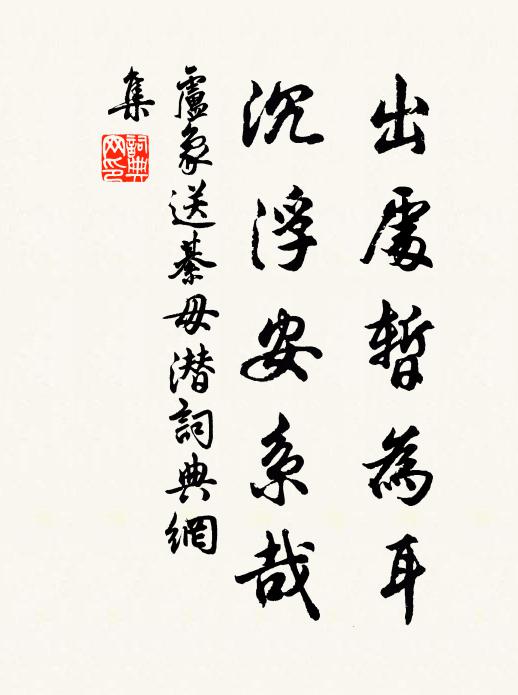 出處暫為耳
沉浮安系哉
盧象送綦毋潛詞典網
集
詞典網印